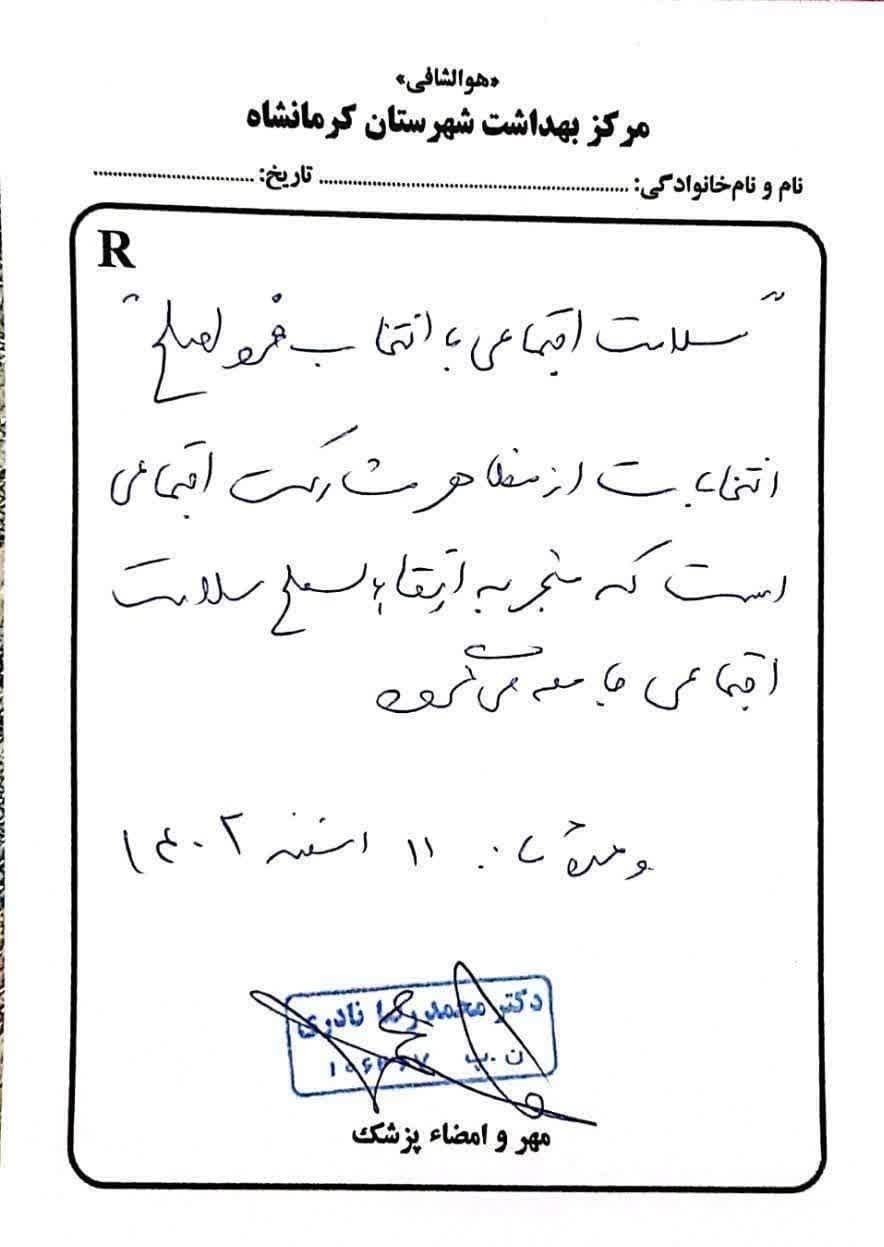 «هوالشافی»
مرکز بهداشت شهرستان کرمانشاه
نام و نام‌خانوادگی: ........................ تاریخ: ........................
R
"سلامت اجتماعی با انتخاب فرد اصلح"
انتخابات از مظاهر مشارکت اجتماعی
است که منجر به ارتقاء سطح سلامت
اجتماعی جامعه می‌گردد
۱۱ اسفند ۱۴۰۲
دکتر محمدرضا نادری
ن.پ
مهر و امضاء پزشک